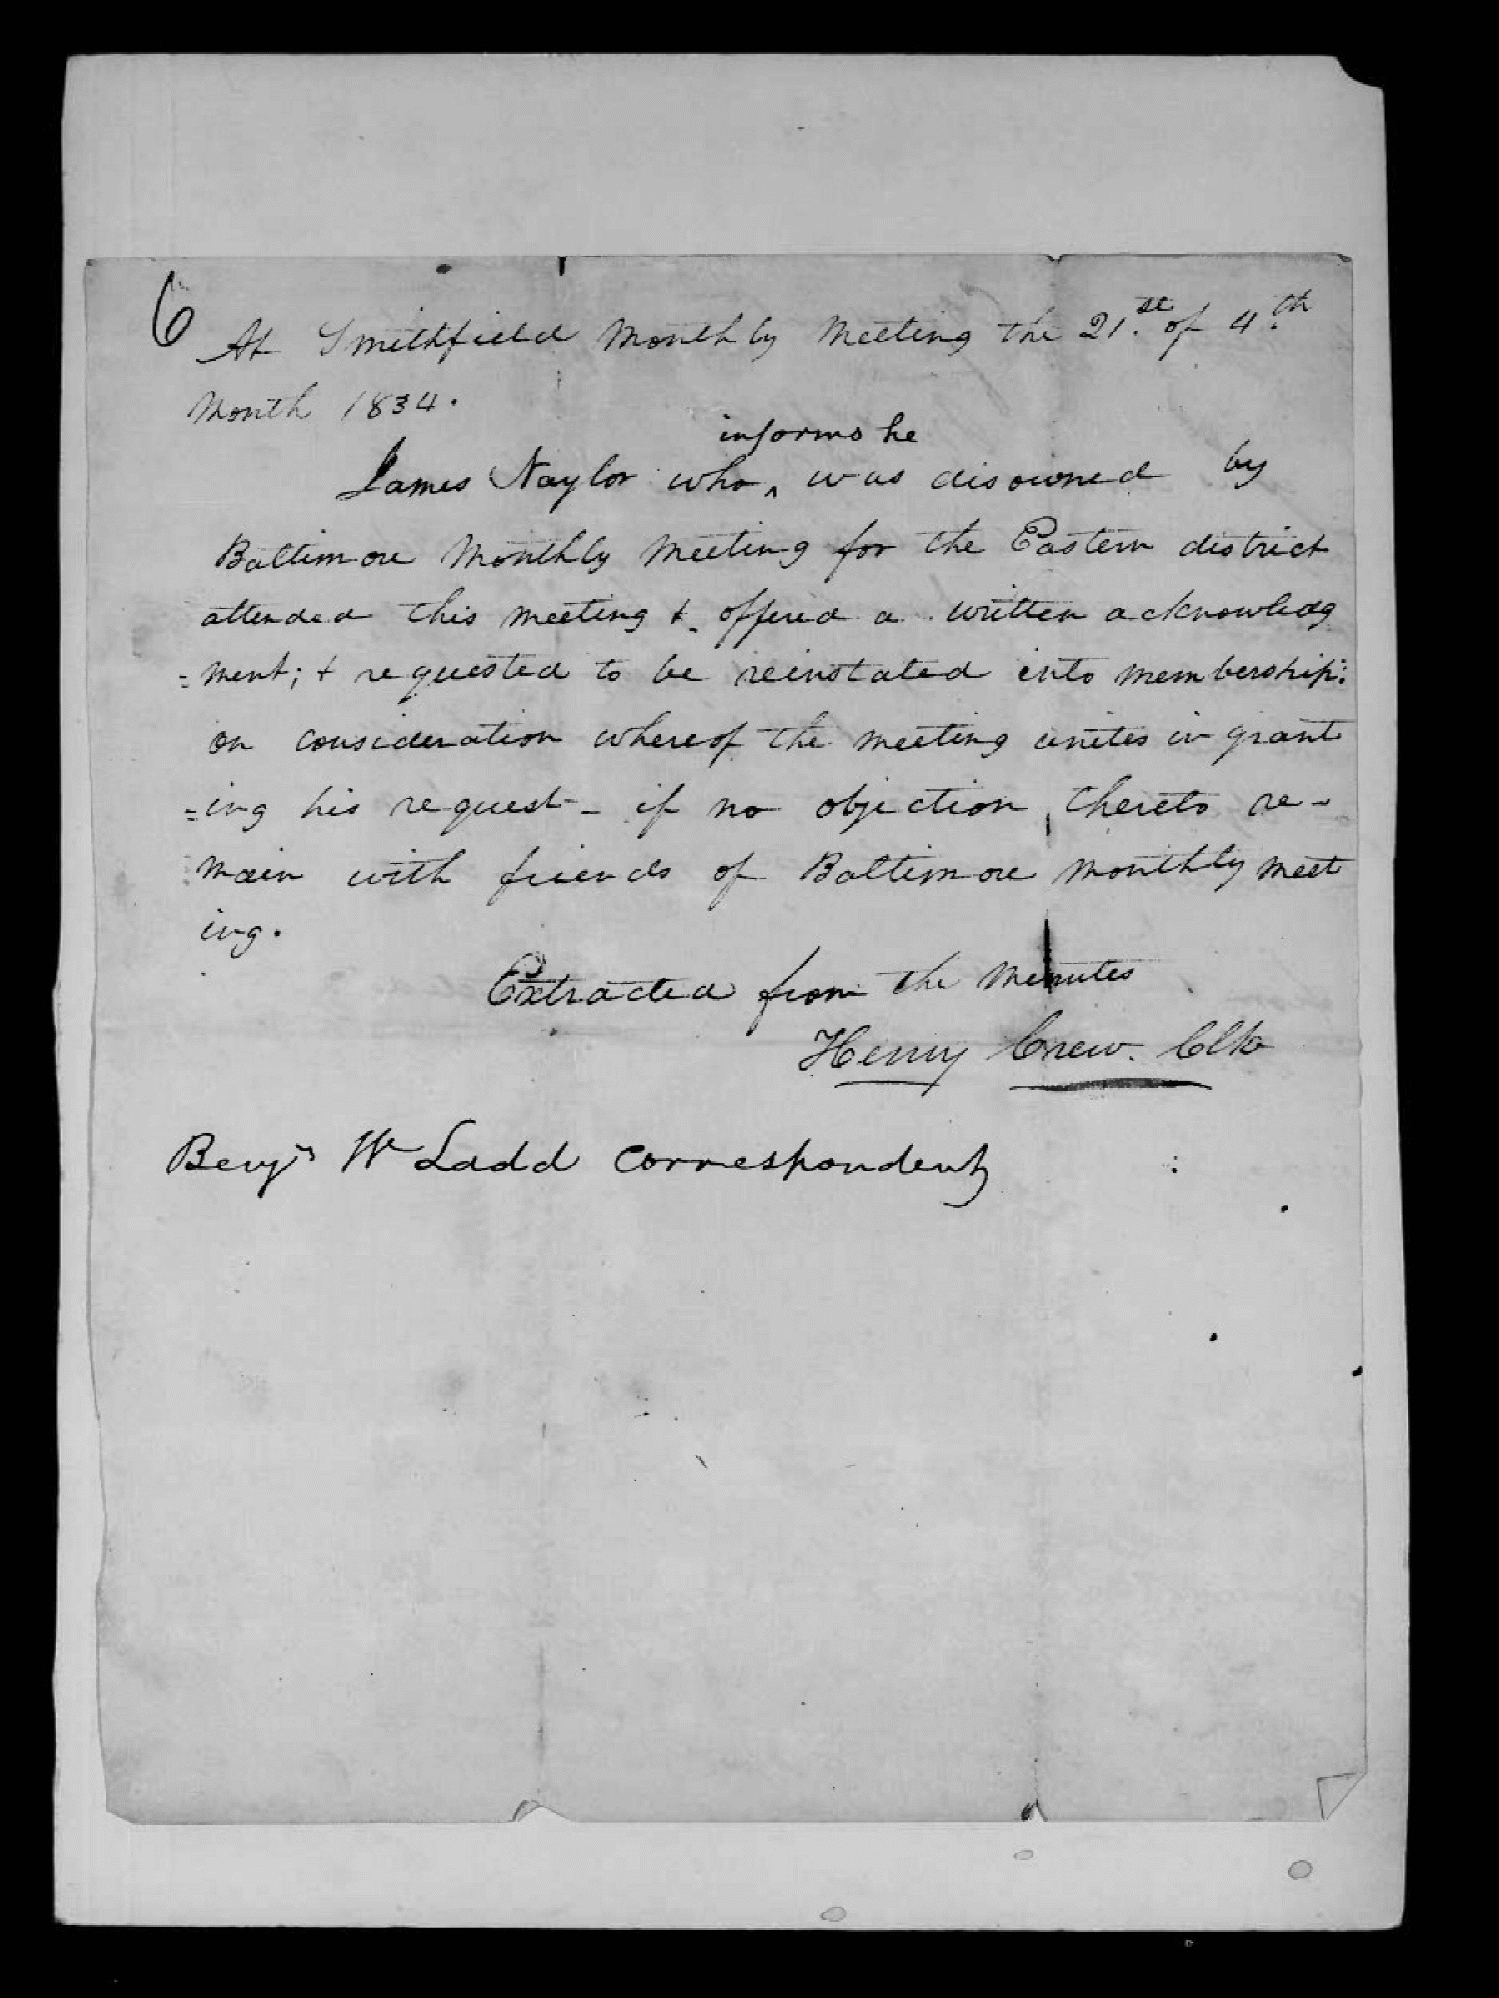 6
At Smithfield Monthly Meeting the 21.st of 4.th
Month 1834.
informs he
James Naylor who ^ was disowned by
Baltimore Monthly Meeting for the Eastern district
attended this meeting & offered a written acknowledg
=ment; & requested to be reinstated into membership:
on consideration whereof the meeting unites in grant
=ing his request - if no objection thereto re-
main with friends of Baltimore Monthly Meet
ing.
Extracted from the Minutes
Henry Crew. Clk
Benjn W Ladd Correspondent